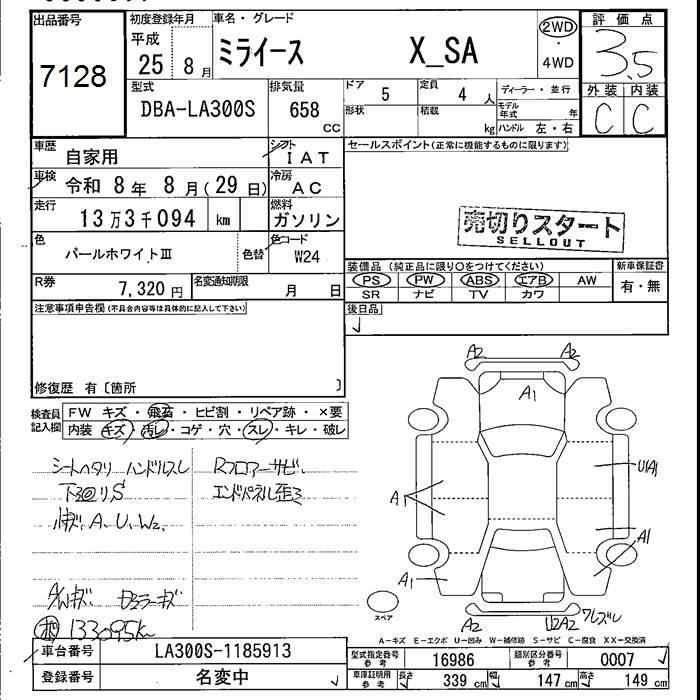 出品番号
7128
初度登録年月
平成
25 8月
車名・グレード
ミライース X_SA
2WD
・
4WD
評価点
3.5
外装 内装
C C
型式
DBA-LA300S
排気量
658
CC
ドア
5
定員
4 人
形状
積載
kg
ディーラー・並行
モデル年式 年
ハンドル 左・右
車歴
自家用
シフト
IAT
車検
令和 8年 8月(29日)
冷房
AC
走行
13万3千094 km
燃料
ガソリン
色
パールホワイトⅢ
色替
色コード
W24
R券
7,320円
名変通知期限
月 日
セールスポイント(正常に機能するものに限ります)
売切りスタート
SELLOUT
装備品(純正品に限り○をつけてください)
PS PW ABS エアB AW
SR ナビ TV カワ
新車保証書
有・無
後日品
注意事項申告欄(不具合内容等は具体的に記入して下さい)
修復歴 有〔箇所 〕
検査員
記入欄
FW キズ・飛石・ヒビ割・リペア跡・×要
内装 キズ・汚れ・コゲ・穴・スレ・キレ・破レ
シートヘタリ ハンドルスレ
下回りS
小キズ、A、U、W2、
Rフロアーサビ
エンドパネル歪ミ
A/Wキズ、
133095km
A2 A2
A1
U(A)
A1
A1
A1
A2 U2A2 ワレズレ
スペア
A－キズ E－エクボ U－凹み W－補修跡 S－サビ C－腐食 XX－交換済
車台番号
LA300S-1185913
登録番号
名変中
型式指定番号
参考
16986
類別区分番号
参考
0007
車庫証明用
参考
長さ 339 cm
幅 147 cm
高さ 149 cm